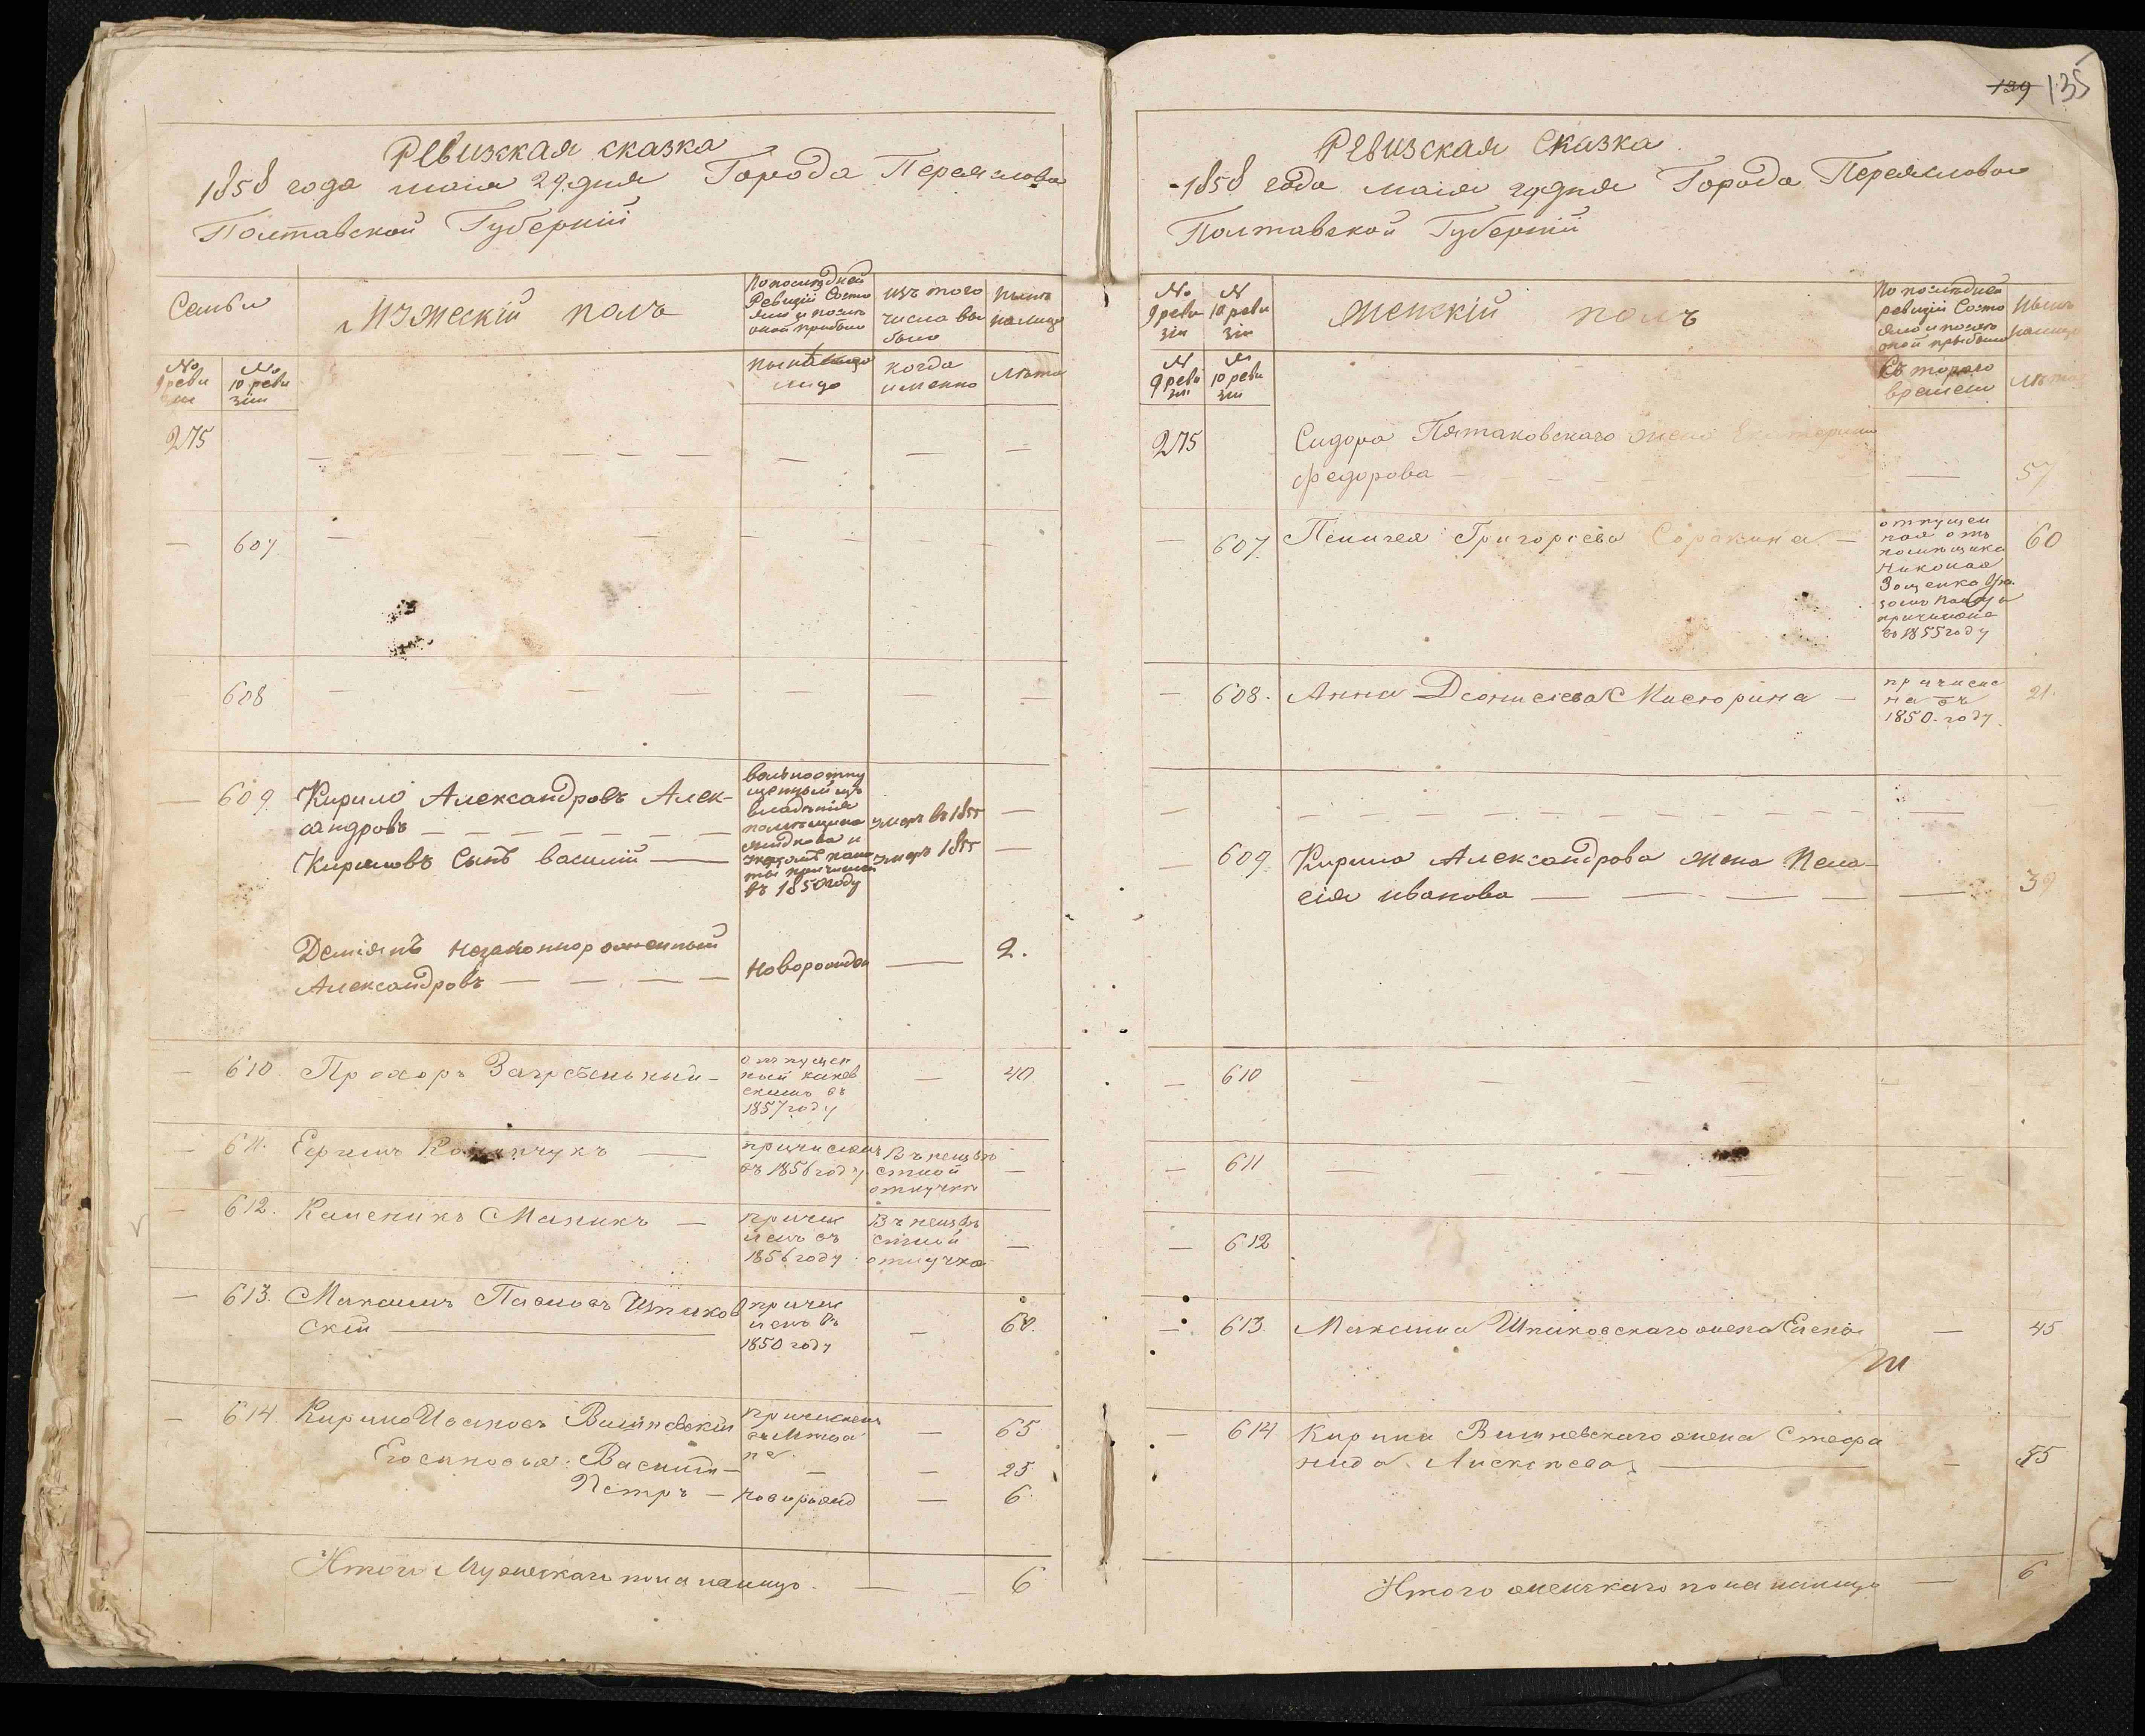 Ревизская сказка
1858 года маия 29 дня Города Переяслова
Полтавской Губернии
Семьи
Мужескій полъ
По последней
Ревизіи Состо
яло и после
оной прибыло
изъ того
числа вы
было
ныне
на лицо
№
9 реви
зіи
№
10 реви
зіи
лицо
когда
именно
лета
275
— 607
— 608
— 609 Кирило Александровъ Алек-
сандровъ
вольноотпу
щенный изъ
владенія
помещика
въ 1850 году
умеръ въ 1855 —
Кириловъ Сынъ василій — умеръ 1855 —
Деміянъ незаконнорожденный
Александровъ — новорожден — 2.
— 610. Прохоръ Загребельный —
отпущен
ный канев
скимъ въ
1857 году
— 40
— 611. Ефимъ —
причисленъ
въ 1856 году
Въ неизве
стной
отлучке
—
— 612. Маликъ —
причи
сленъ въ
1856 году
Въ неизве
стной
отлучке
—
— 613. Максимъ Павловъ Шпиков
скій
причи
сленъ въ
1850 году
— 60.
— 614. Кирило Ивановъ Вишневскій
причисленъ
— 65
Его сыновья: Василій — — — 25
Петръ — новорожд — 6
Итого Мужескаго пола налицо — 6
139 135
Ревизская Сказка
1858 года маія 29 дня Города Переяслова
Полтавской Губерніи
№
9 реви
зіи
№
10 реви
зіи
Женскій полъ
По последней
ревизіи Состо
яло и после
оной прибыло
ныне
налицо
№
9 реви
зіи
№
10 реви
зіи
Съ которого
времени
лета
275 Сидора Пятаковскаго жена Екатерина
федорова — 57
— 607. Григоріева Сорокина —
отпущен
ная отъ
помещика
Николая
причислена
въ 1855 году
60
— 608. Анна Діонисіева —
причисле
на въ
1850. году.
21.
— 609. Кирила Александрова жена Пела-
гія иванова — 39
— 610
— 611
— 612
— 613. Максима Шпиковскаго жена Елена — 45
— 614 Кирила Вишневскаго жена Стефа
нида Алексеева — 55
Итого женскаго пола налицо — 6